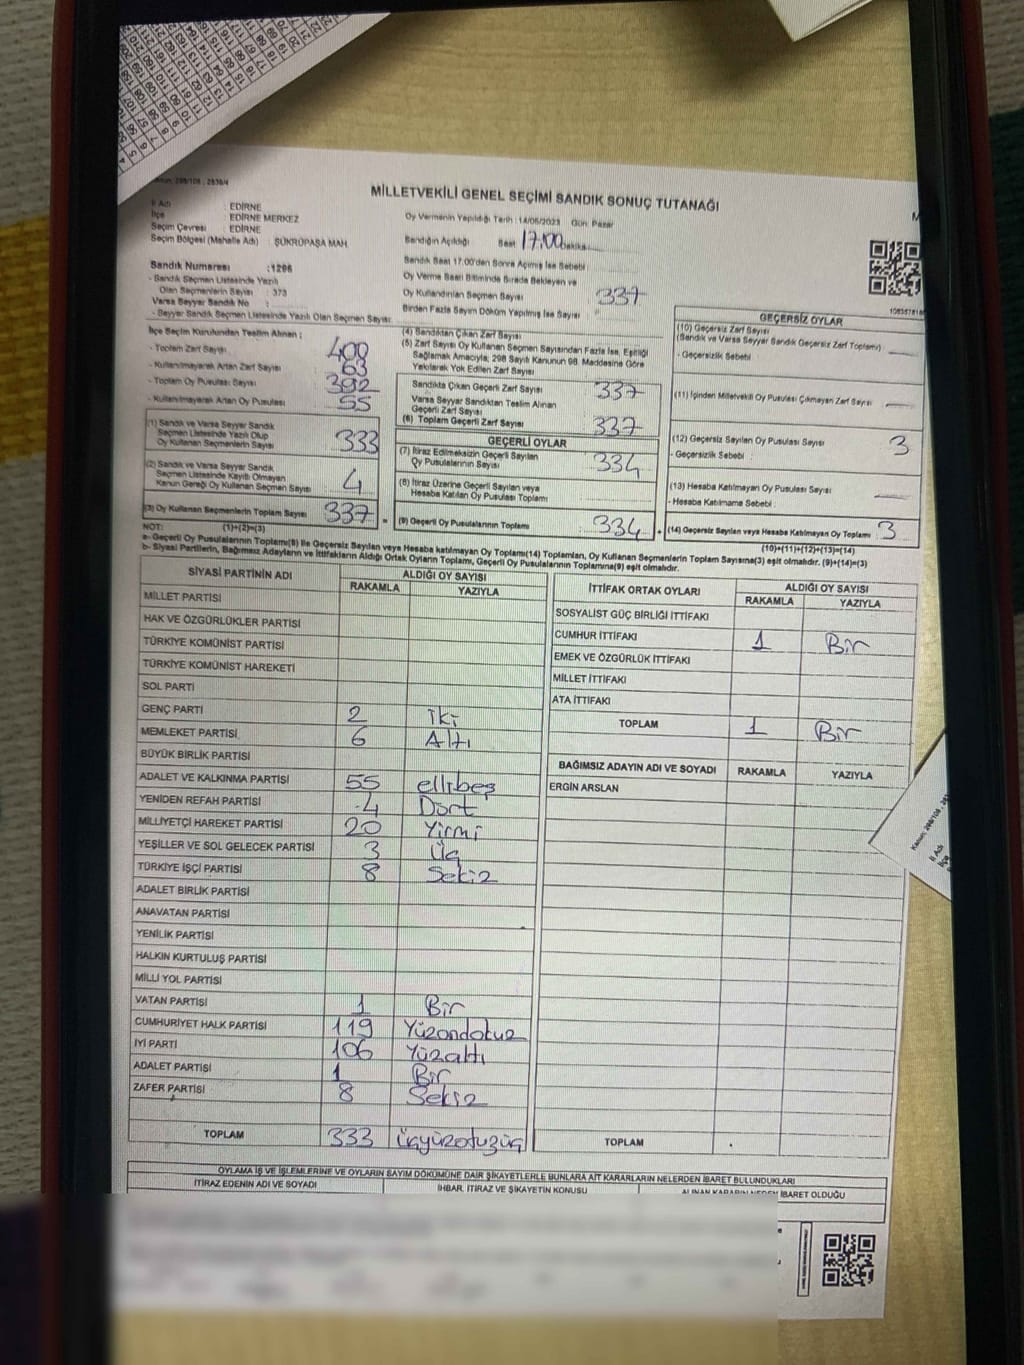 Kanun: 298/108 , 2839/4
MİLLETVEKİLİ GENEL SEÇİMİ SANDIK SONUÇ TUTANAĞI
İl Adı : EDİRNE
İlçe : EDİRNE MERKEZ
Seçim Çevresi : EDİRNE
Seçim Bölgesi (Mahalle Adı) : ŞÜKRÜPAŞA MAH.
Oy Vermenin Yapıldığı Tarih : 14/05/2023 Gün: Pazar
Sandığın Açıldığı Saat 17:00 Dakika
Sandık Saat 17.00'den Sonra Açılmış İse Sebebi :
Oy Verme Saati Bitiminde Sırada Bekleyen ve
Oy Kullandırılan Seçmen Sayısı 337
Birden Fazla Sayım Döküm Yapılmış İse Sayısı :
Sandık Numarası :1296
- Sandık Seçmen Listesinde Yazılı
Olan Seçmenlerin Sayısı : 373
Varsa Seyyar Sandık No :
- Seyyar Sandık Seçmen Listesinde Yazılı Olan Seçmen Sayısı:
İlçe Seçim Kurulundan Teslim Alınan ;
- Toplam Zarf Sayısı 400
- Kullanılmayarak Artan Zarf Sayısı 63
- Toplam Oy Pusulası Sayısı 392
- Kullanılmayarak Artan Oy Pusulası 55
(1) Sandık ve Varsa Seyyar Sandık
Seçmen Listesinde Yazılı Olup
Oy Kullanan Seçmenlerin Sayısı 333
(2) Sandık ve Varsa Seyyar Sandık
Seçmen Listesinde Kayıtlı Olmayan
Kanun Gereği Oy Kullanan Seçmen Sayısı 4
(3) Oy Kullanan Seçmenlerin Toplam Sayısı 337
(1)+(2)=(3)
(4) Sandıktan Çıkan Zarf Sayısı
(5) Zarf Sayısı Oy Kullanan Seçmen Sayısından Fazla İse, Eşitliği
Sağlamak Amacıyla; 298 Sayılı Kanunun 98. Maddesine Göre
Yakılarak Yok Edilen Zarf Sayısı
Sandıkta Çıkan Geçerli Zarf Sayısı 337
Varsa Seyyar Sandıktan Teslim Alınan
Geçerli Zarf Sayısı
(6) Toplam Geçerli Zarf Sayısı 337
GEÇERLİ OYLAR
(7) İtiraz Edilmeksizin Geçerli Sayılan
Oy Pusulalarının Sayısı 334
(8) İtiraz Üzerine Geçerli Sayılan veya
Hesaba Katılan Oy Pusulası Toplamı
(9) Geçerli Oy Pusulalarının Toplamı : 334
GEÇERSİZ OYLAR
(10) Geçersiz Zarf Sayısı
(Sandık ve Varsa Seyyar Sandık Geçersiz Zarf Toplamı)
- Geçersizlik Sebebi :
(11) İçinden Milletvekili Oy Pusulası Çıkmayan Zarf Sayısı
(12) Geçersiz Sayılan Oy Pusulası Sayısı 3
- Geçersizlik Sebebi :
(13) Hesaba Katılmayan Oy Pusulası Sayısı
- Hesaba Katılmama Sebebi :
(14) Geçersiz Sayılan veya Hesaba Katılmayan Oy Toplamı 3
(10)+(11)+(12)+(13)=(14)
NOT:
a- Geçerli Oy Pusulalarının Toplamı(9) ile Geçersiz Sayılan veya Hesaba katılmayan Oy Toplamı(14) Toplamları, Oy Kullanan Seçmenlerin Toplam Sayısına(3) eşit olmalıdır. (9)+(14)=(3)
b- Siyasi Partilerin, Bağımsız Adayların ve İttifakların Aldığı Ortak Oyların Toplamı, Geçerli Oy Pusulalarının Toplamına(9) eşit olmalıdır.
SİYASİ PARTİNİN ADI ALDIĞI OY SAYISI
RAKAMLA YAZIYLA
MİLLET PARTİSİ
HAK VE ÖZGÜRLÜKLER PARTİSİ
TÜRKİYE KOMÜNİST PARTİSİ
TÜRKİYE KOMÜNİST HAREKETİ
SOL PARTİ
GENÇ PARTİ 2 iki
MEMLEKET PARTİSİ 6 Altı
BÜYÜK BİRLİK PARTİSİ
ADALET VE KALKINMA PARTİSİ 55 ellibeş
YENİDEN REFAH PARTİSİ 4 Dört
MİLLİYETÇİ HAREKET PARTİSİ 20 Yirmi
YEŞİLLER VE SOL GELECEK PARTİSİ 3 Üç
TÜRKİYE İŞÇİ PARTİSİ 8 Sekiz
ADALET BİRLİK PARTİSİ
ANAVATAN PARTİSİ
YENİLİK PARTİSİ
HALKIN KURTULUŞ PARTİSİ
MİLLİ YOL PARTİSİ
VATAN PARTİSİ 1 Bir
CUMHURİYET HALK PARTİSİ 119 Yüzondokuz
İYİ PARTİ 106 Yüzaltı
ADALET PARTİSİ 1 Bir
ZAFER PARTİSİ 8 Sekiz
TOPLAM 333 üçyüzotuzüç
İTTİFAK ORTAK OYLARI ALDIĞI OY SAYISI
RAKAMLA YAZIYLA
SOSYALİST GÜÇ BİRLİĞİ İTTİFAKI
CUMHUR İTTİFAKI 1 Bir
EMEK VE ÖZGÜRLÜK İTTİFAKI
MİLLET İTTİFAKI
ATA İTTİFAKI
TOPLAM 1 Bir
BAĞIMSIZ ADAYIN ADI VE SOYADI RAKAMLA YAZIYLA
ERGİN ARSLAN
TOPLAM
OYLAMA İŞ VE İŞLEMLERİNE VE OYLARIN SAYIM DÖKÜMÜNE DAİR ŞİKAYETLERLE BUNLARA AİT KARARLARIN NELERDEN İBARET BULUNDUKLARI
İTİRAZ EDENİN ADI VE SOYADI İHBAR, İTİRAZ VE ŞİKAYETİN KONUSU ALINAN KARARIN NEDEN İBARET OLDUĞU